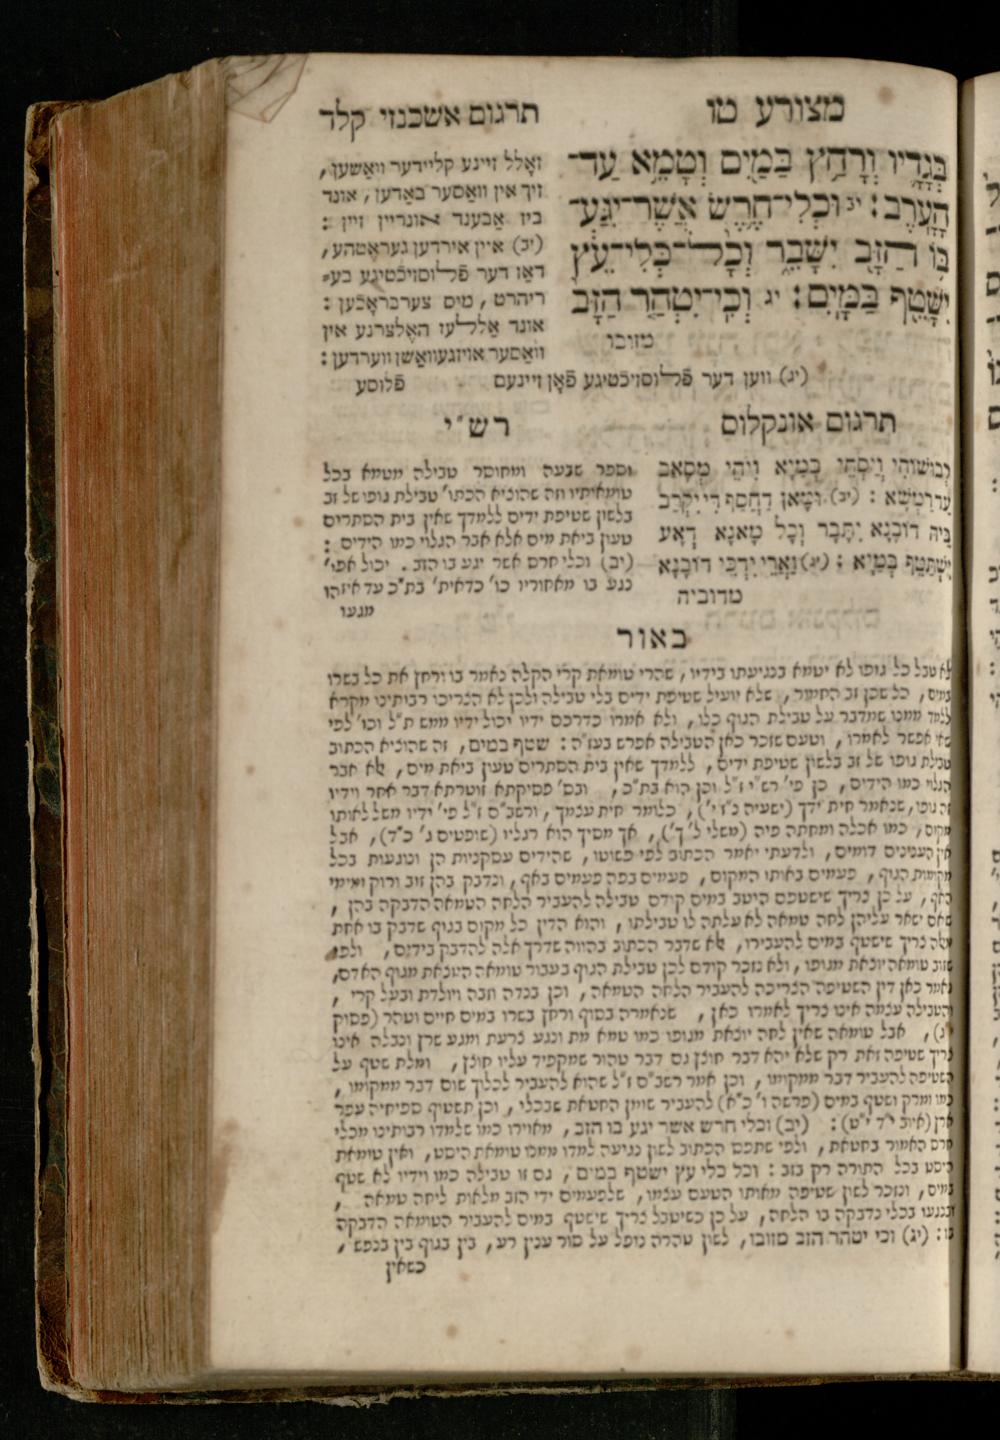 מצורע טו
תרגום אשכנזי קלד
בְּגָדָיו וְרָחַץ בַּמַּיִם וְטָמֵא עַד־
הָעָרֶב׃ יב וּכְלִי־חֶרֶשׂ אֲשֶׁר־יִגַּע־
בּוֹ הַזָּב יִשָּׁבֵר וְכָל־כְּלִי־עֵץ
יִשָּׁטֵף בַּמָּיִם׃ יג וְכִי־יִטְהַר הַזָּב
מזובו
זאָלל זיינע קליידער וואַשען,
זיך אין וואַסער באַדען, אונד
ביז אַבענד אונריין זיין :
(יב) איין אירדען געראֶטהע,
דאַז דער פֿלוסזיכֿטיגע בע־
ריהרט, מוס צערבראָכֿען :
אונד אַללעז האֶלצרנע אין
וואַסער אויזגעוואַשן ווערדען :
(יג) ווען דער פֿלוסזיכֿטיגע פֿאָן זיינעם פֿלוסע
תרגום אונקלוס
לְבוּשׁוֹהִי וְיַסְחֵי בְמַיָּא וִיהֵי מְסָאָב
עַד רַמְשָׁא : (יב) וּמָאן דַּחֲסַף דִּי יִקְרַב
בֵּיהּ דּוֹבָנָא יִתְּבָר וְכָל מָאנָא דְאָע
יִשְׁתְּטֵף בְּמַיָּא : (יג) וַאֲרֵי יִדְכֵּי דּוֹבָנָא
מדוביה
רש״י
וספר שבעה ומחוסר טבילה מטמא בכל
טומאותיו וזה שהוציא הכתו׳ טבילת גופו של זב
בלשון שטיפת ידים ללמדך שאין בית הסתרים
טעון ביאת מים אלא אבר הגלוי כמו הידים :
(יב) וכלי חרס אשר יגע בו הזב. יכול אפי׳
נגע בו מאחוריו כו׳ כדאית׳ בת״כ עד איזהו
מגעו
באור
לא טבל כל גופו לא יטמא בנגיעתו בידיו, שהרי טומאת קרי הקלה נאמר בו ורחץ את כל בשרו
במים, כל שכן זב החמור, שלא יועיל שטיפת ידים בלי טבילה ולכן לא הצריכו רבותינו מקרא
ללמד ממנו שמדבר על טבילת הגוף כלו, ולא אמרו כדרכם ידיו יכול ידיו ממש ת״ל וכו׳ לפי
שאי אפשר לאמרו, וטעם שזכר כאן הטבילה אפרש בעז״ה : שטף במים, זה שהוציא הכתוב
טבילת גופו של זב בלשון שטיפת ידים, ללמדך שאין בית הסתרים טעון ביאת מים, אלא אבר
הגלוי כמו הידים, כן פי׳ רש״י ז״ל וכן הוא בת״כ, ובס׳ פסיקתא זוטרתא דבר אחר וידיו
זה גופו, שנאמר חית ידך (ישעיה נ״ז י׳), כלומר חית עצמך, ורשב״ם ז״ל פי׳ ידיו משל לאותו
מקום, כמו אכלה ומחתה פיה (משלי ל׳ כ׳), אך מסיך הוא רגליו (שופטים ג׳ כ״ד), אבל
אין הענינים דומים, ולדעתי יאמר הכתוב לפי פשוטו, שהידים עסקניות הן ונוגעות בכל
מקומות הגוף, פעמים באותו המקום, פעמים בפה פעמים באף, ונדבק בהן זוב ורוק ומימי
האף, על כן צריך שישטפם היטב במים קודם טבילה להעביר הלחה הטמאה הדבקה בהן,
שאם ישאר עליהן לחה טמאה לא עלתה לו טבילתו, והוא הדין כל מקום בגוף שדבק בו אחת
אלה צריך שישטף במים להעבירו, אלא שדבר הכתוב בהווה שדרך אלה להדבק בידים, ולפי
שזוב טומאה יוצאת מגופו, ולא נזכר קודם לכן טבילת הגוף בעבור טומאה היוצאת מגוף האדם,
נאמר כאן דין השטיפה הצריכה להעביר הלחה הטמאה, וכן בנדה וזבה ויולדת ובעל קרי,
והטבילה עצמה אינו צריך לאמרו כאן, שנאמרה בסוף ורחץ בשרו במים חיים וטהר (פסוק
י״ג), אבל טומאה שאין לחה יוצאת מגופו כמו טמא מת ונגע צרעת ומגע שרץ ונבלה אינו
צריך שטיפה זאת רק שלא יהא דבר חוצץ גם דבר טהור שמקפיד עליו חוצץ, ומלת שטף על
השטיפה להעביר דבר ממקומו, וכן אמר רשב״ם ז״ל שהוא להעביר לכלוך שום דבר ממקומו,
כמו ומרק ושטף במים (פרשה ו׳ כ״א) להעביר שומן החטאת שבכלי, וכן תשטוף ספיחיה עפר
ארץ (איוב י״ד י״ט) : (יב) וכלי חרש אשר יגע בו הזב, מאוירו כמו שלמדו רבותינו מכלי
חרס האמור בחטאת, ולפי שתפס הכתוב לשון נגיעה למדו ממנו טומאת היסט, ואין טומאת
היסט בכל התורה רק בזב : וכל כלי עץ ישטף במים, גם זו טבילה כמו וידיו לא שטף
במים, ונזכר לשון שטיפה מאותו הטעם עצמו, שלפעמים ידי הזב מלאות ליחה טמאה,
ובנגעו בכלי נדבקה בו הלחה, על כן כשיטבל צריך שישטף במים להעביר הטומאה הדבקה
בו : (יג) וכי יטהר הזב מזובו, לשון טהרה נופל על סור ענין רע, בין בגוף בין בנפש,
כשאין